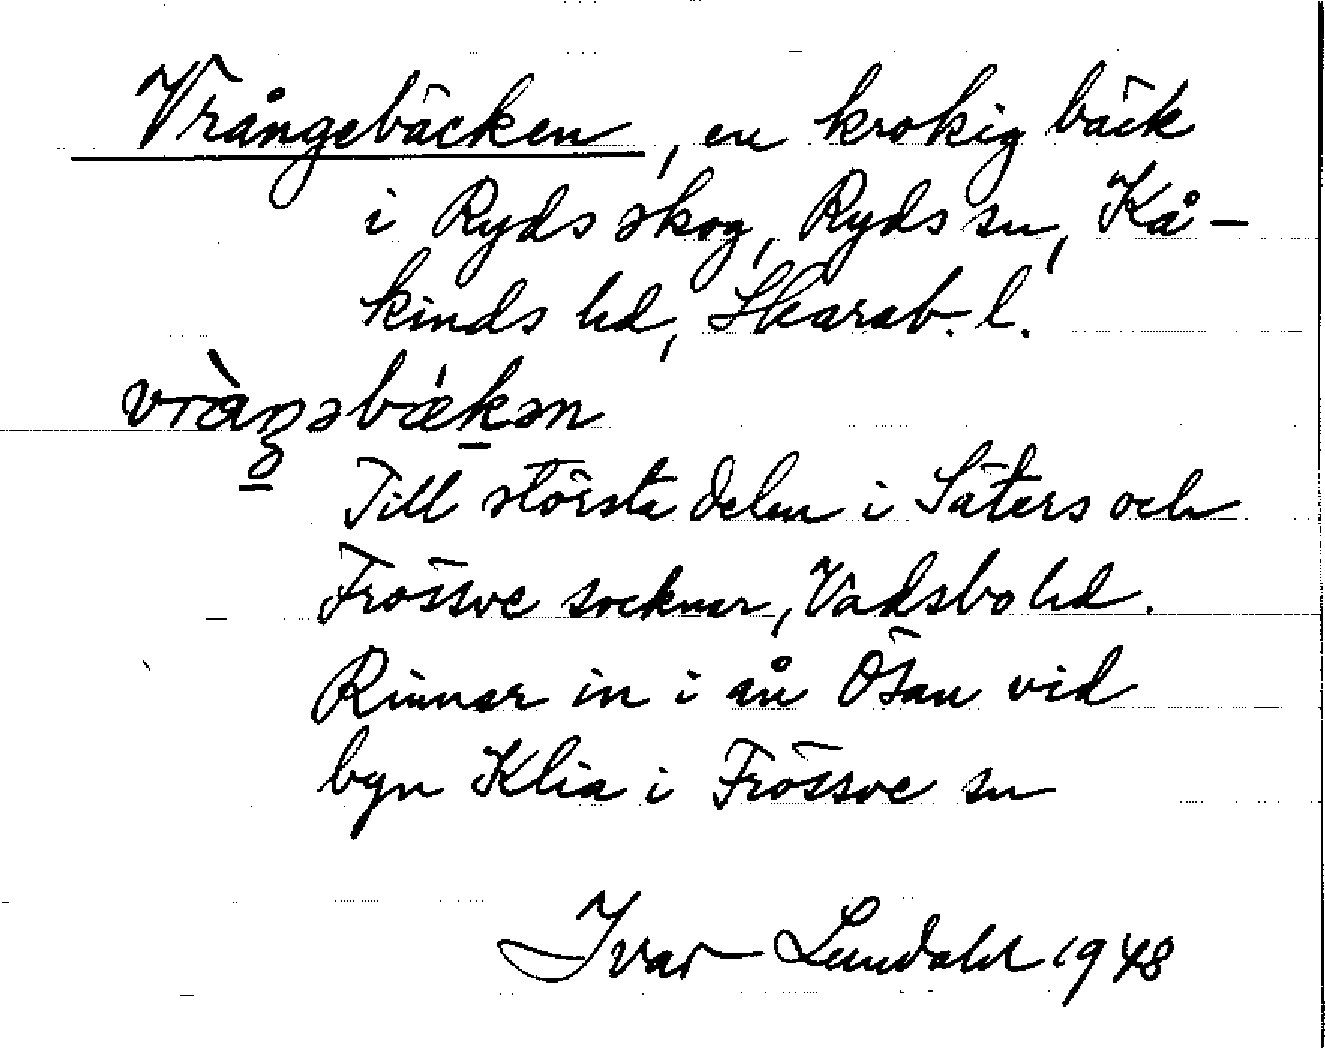 Vrångebäcken, en krokig bäck
i Ryds skog, Ryds sn, Kå-
kinds hd, Skarab. l.
vràŋəbǽkən
Till största delen i Säters och
Frössve socknar, Vadsbo hd.
Rinner in i ån Ösan vid
byn Klia i Frössve sn
Ivar Lundahl 1948